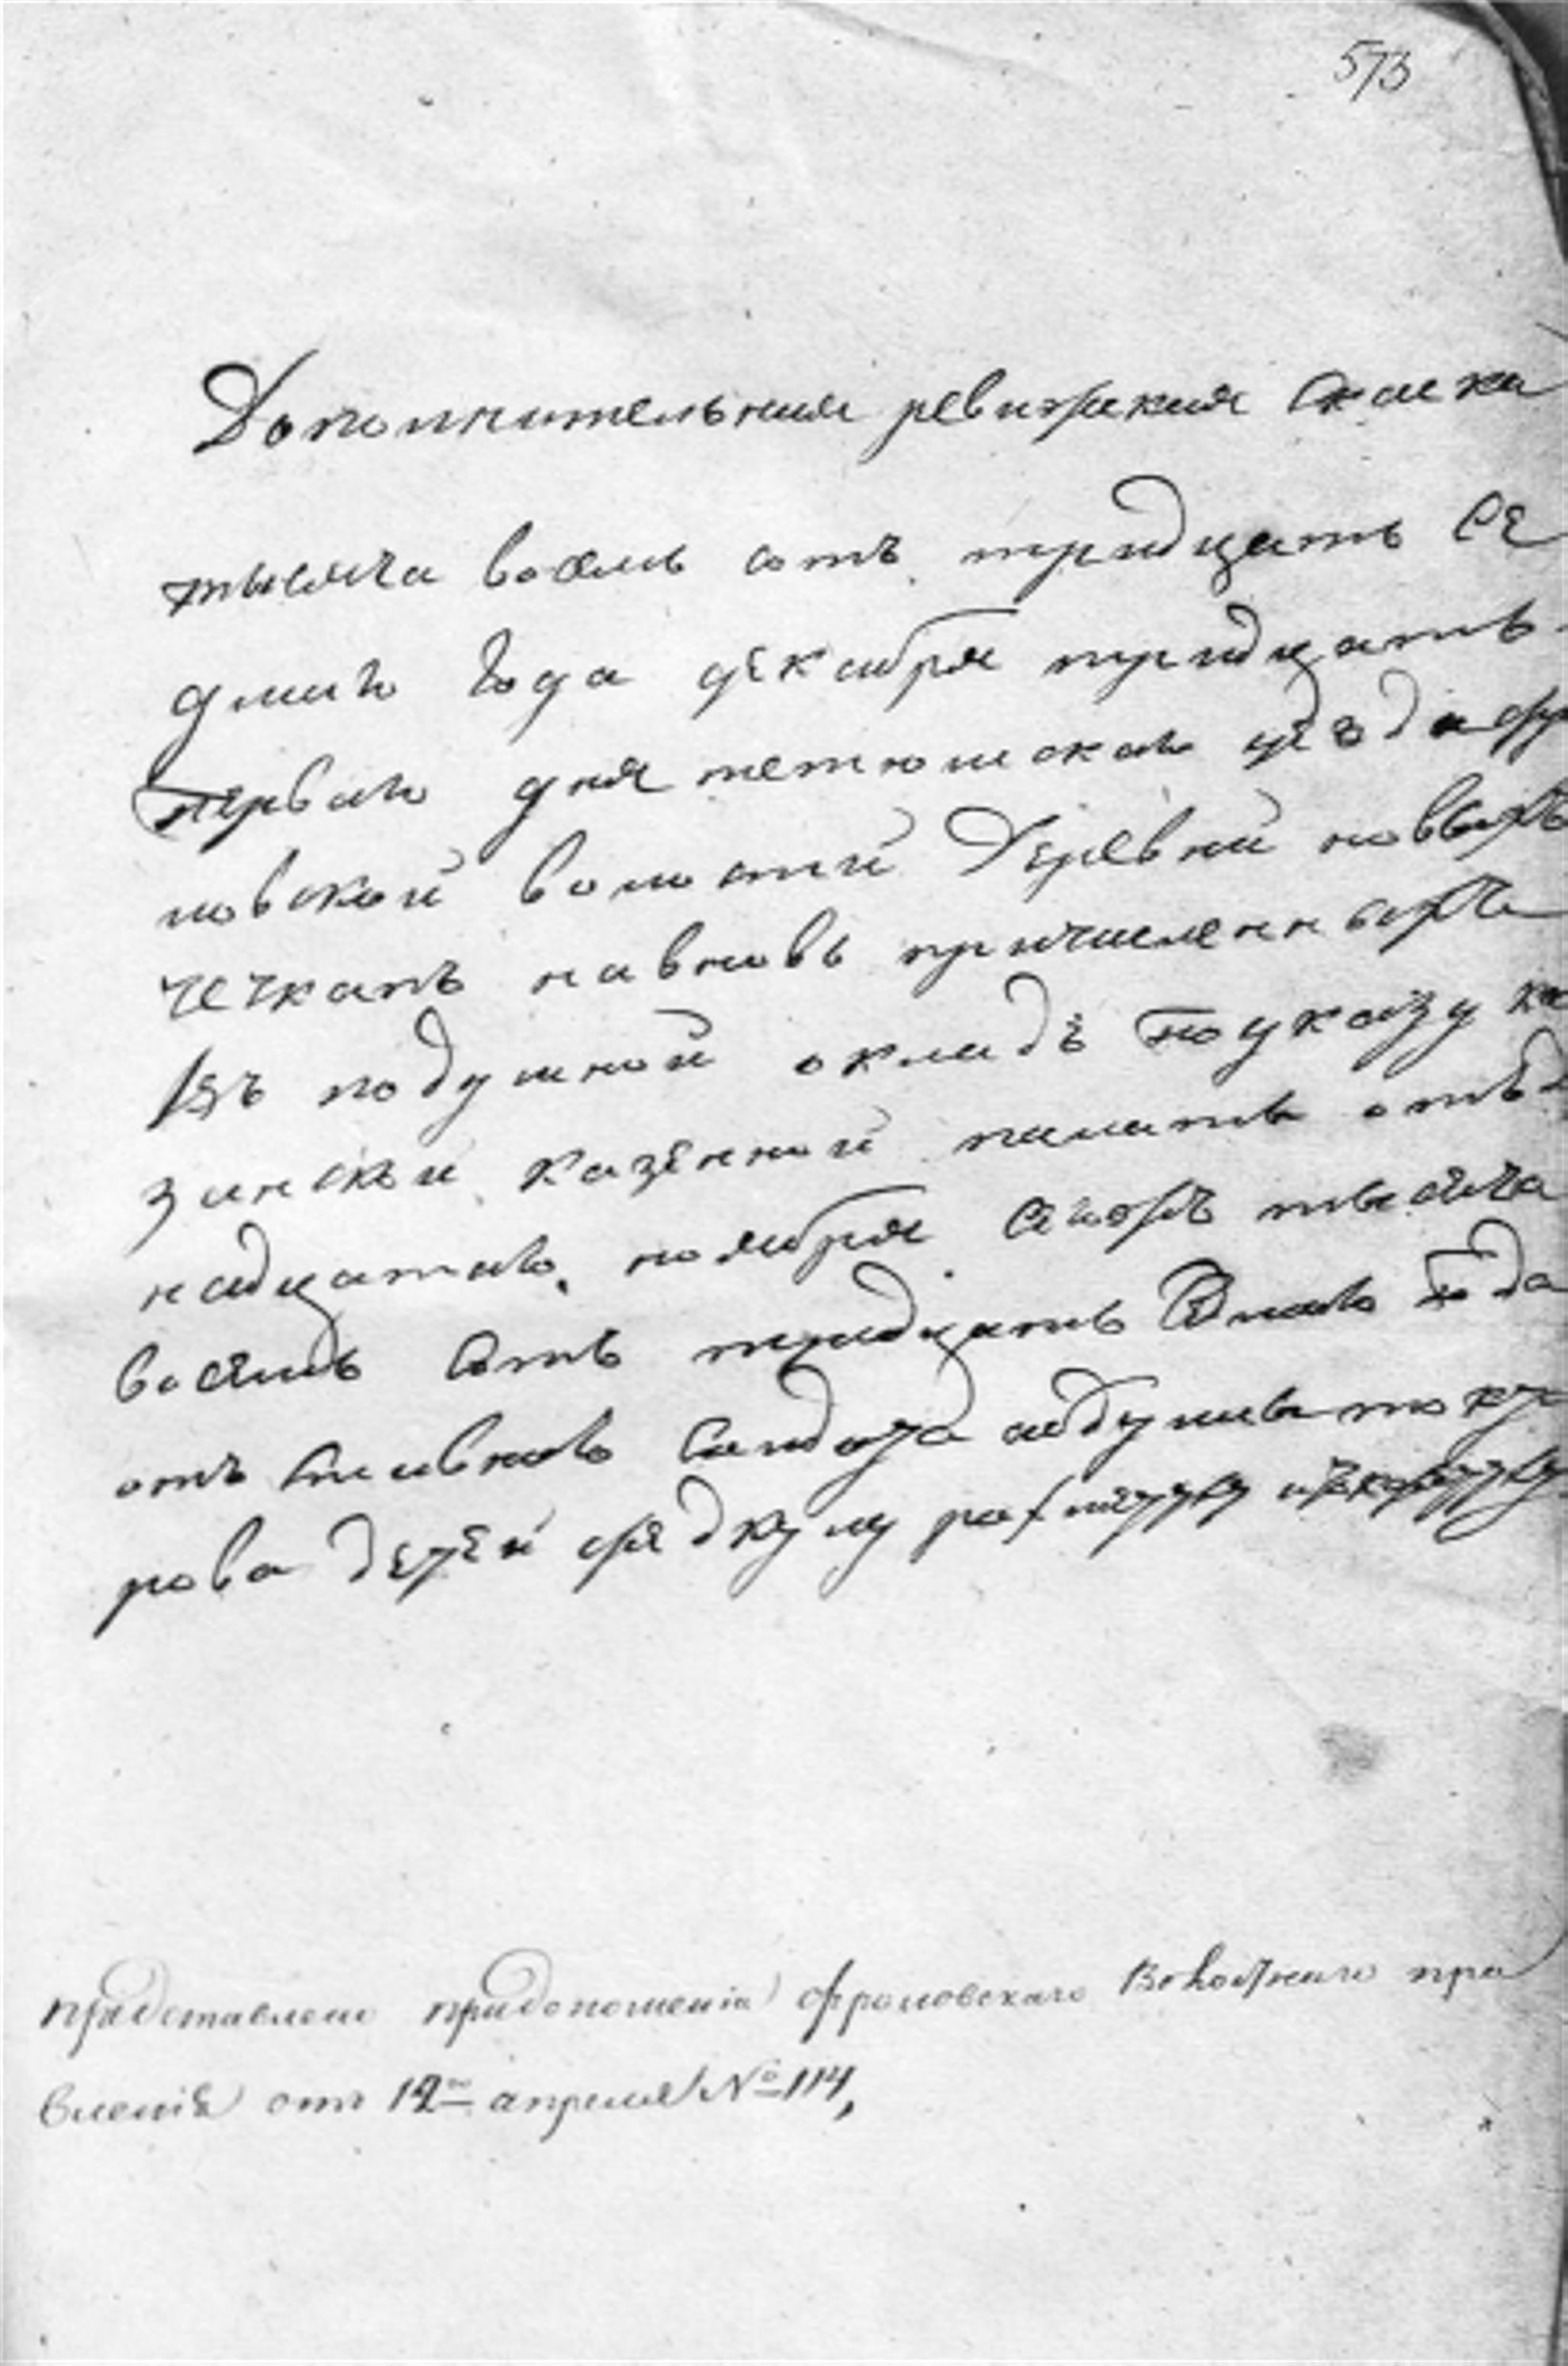 573
Дополнительная ревижская скаска
тысяча восемь сотъ тридцать се
дмаго года декабря тридцать
перваго дня тетюшскаго уезда фр
ловской волостии Деревни новыхъ
чечкапъ навновь причисленныхъ
въ подушной окладъ поуказу ка
занской казенной палаты отъ
надцатаго ноября сегожъ тысяча
восемь сотъ тридцать седмаго года
отъ
рова детей
представлено придоношении фроловскаго Волостнаго пра
вления отъ 12го апреля № 114,